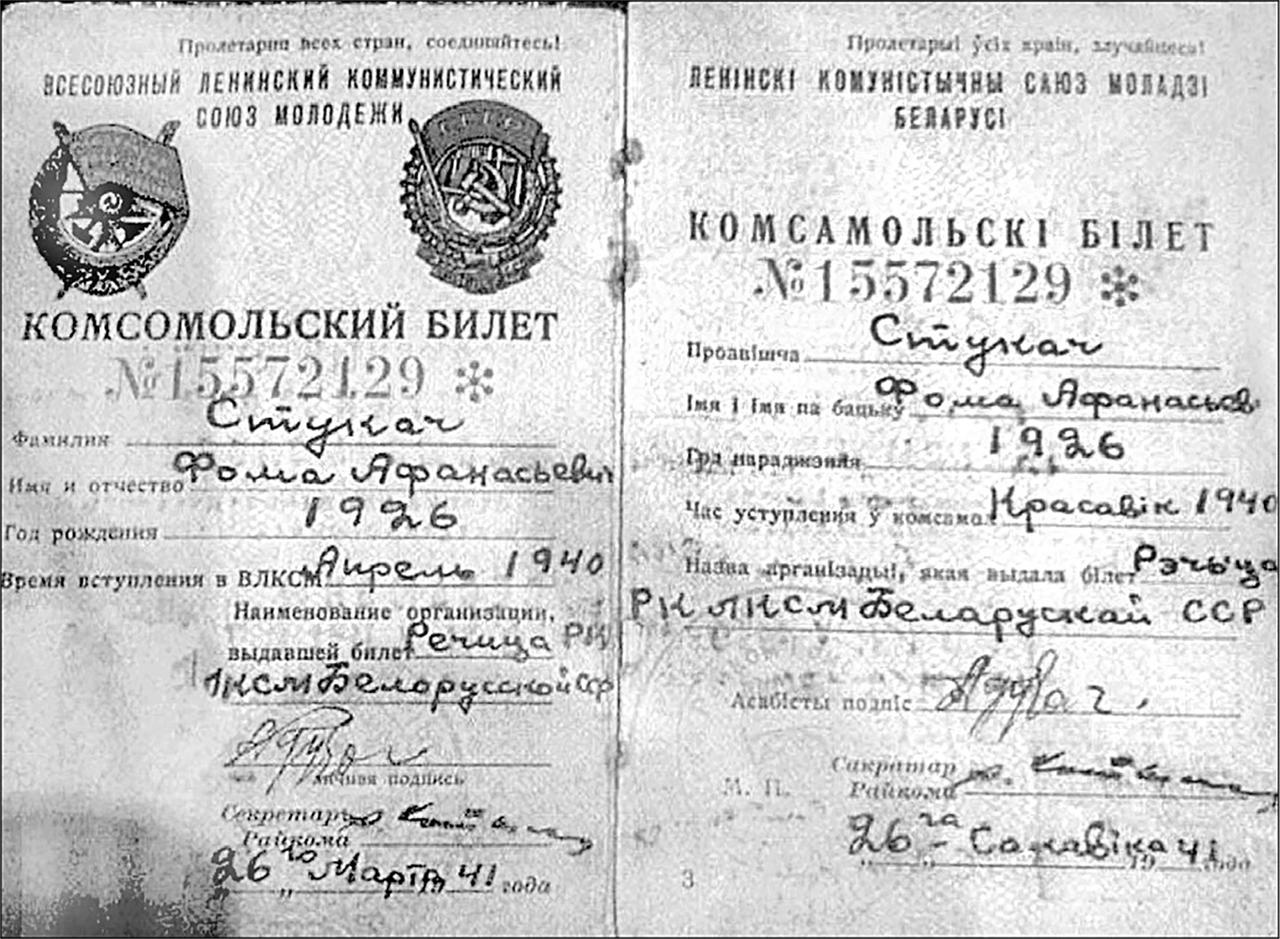 Пролетарии всех стран, соединяйтесь!
ВСЕСОЮЗНЫЙ ЛЕНИНСКИЙ КОММУНИСТИЧЕСКИЙ
СОЮЗ МОЛОДЕЖИ
СССР
КОМСОМОЛЬСКИЙ БИЛЕТ
№15572129 *
Фамилия Стукач
Имя и отчество Фома Афанасьевич
Год рождения 1926
Время вступления в ВЛКСМ Апрель 1940
Наименование организации,
выдавшей билет Речица РК
ЛКСМ Белорусской ССР
личная подпись
Секретарь
Райкома
26го Марта 41 года
Пролетарыі ўсіх краін, злучайцеся!
ЛЕНІНСКІ КОМУНІСТЫЧНЫ САЮЗ МОЛАДЗІ
БЕЛАРУСІ
КОМСАМОЛЬСКІ БІЛЕТ
№15572129 *
Прозвішча Стукач
Імя і імя па бацьку Фома Афанасьев
Год нараджэння 1926
Час уступлення ў комсамол Красавік 1940
Назва арганізацыі, якая выдала білет Рэчыца
РК ЛКСМ Беларускай ССР
Асабісты подпіс
Сакратар
М. П. Райкома
26га Сакавіка 1941 года
3